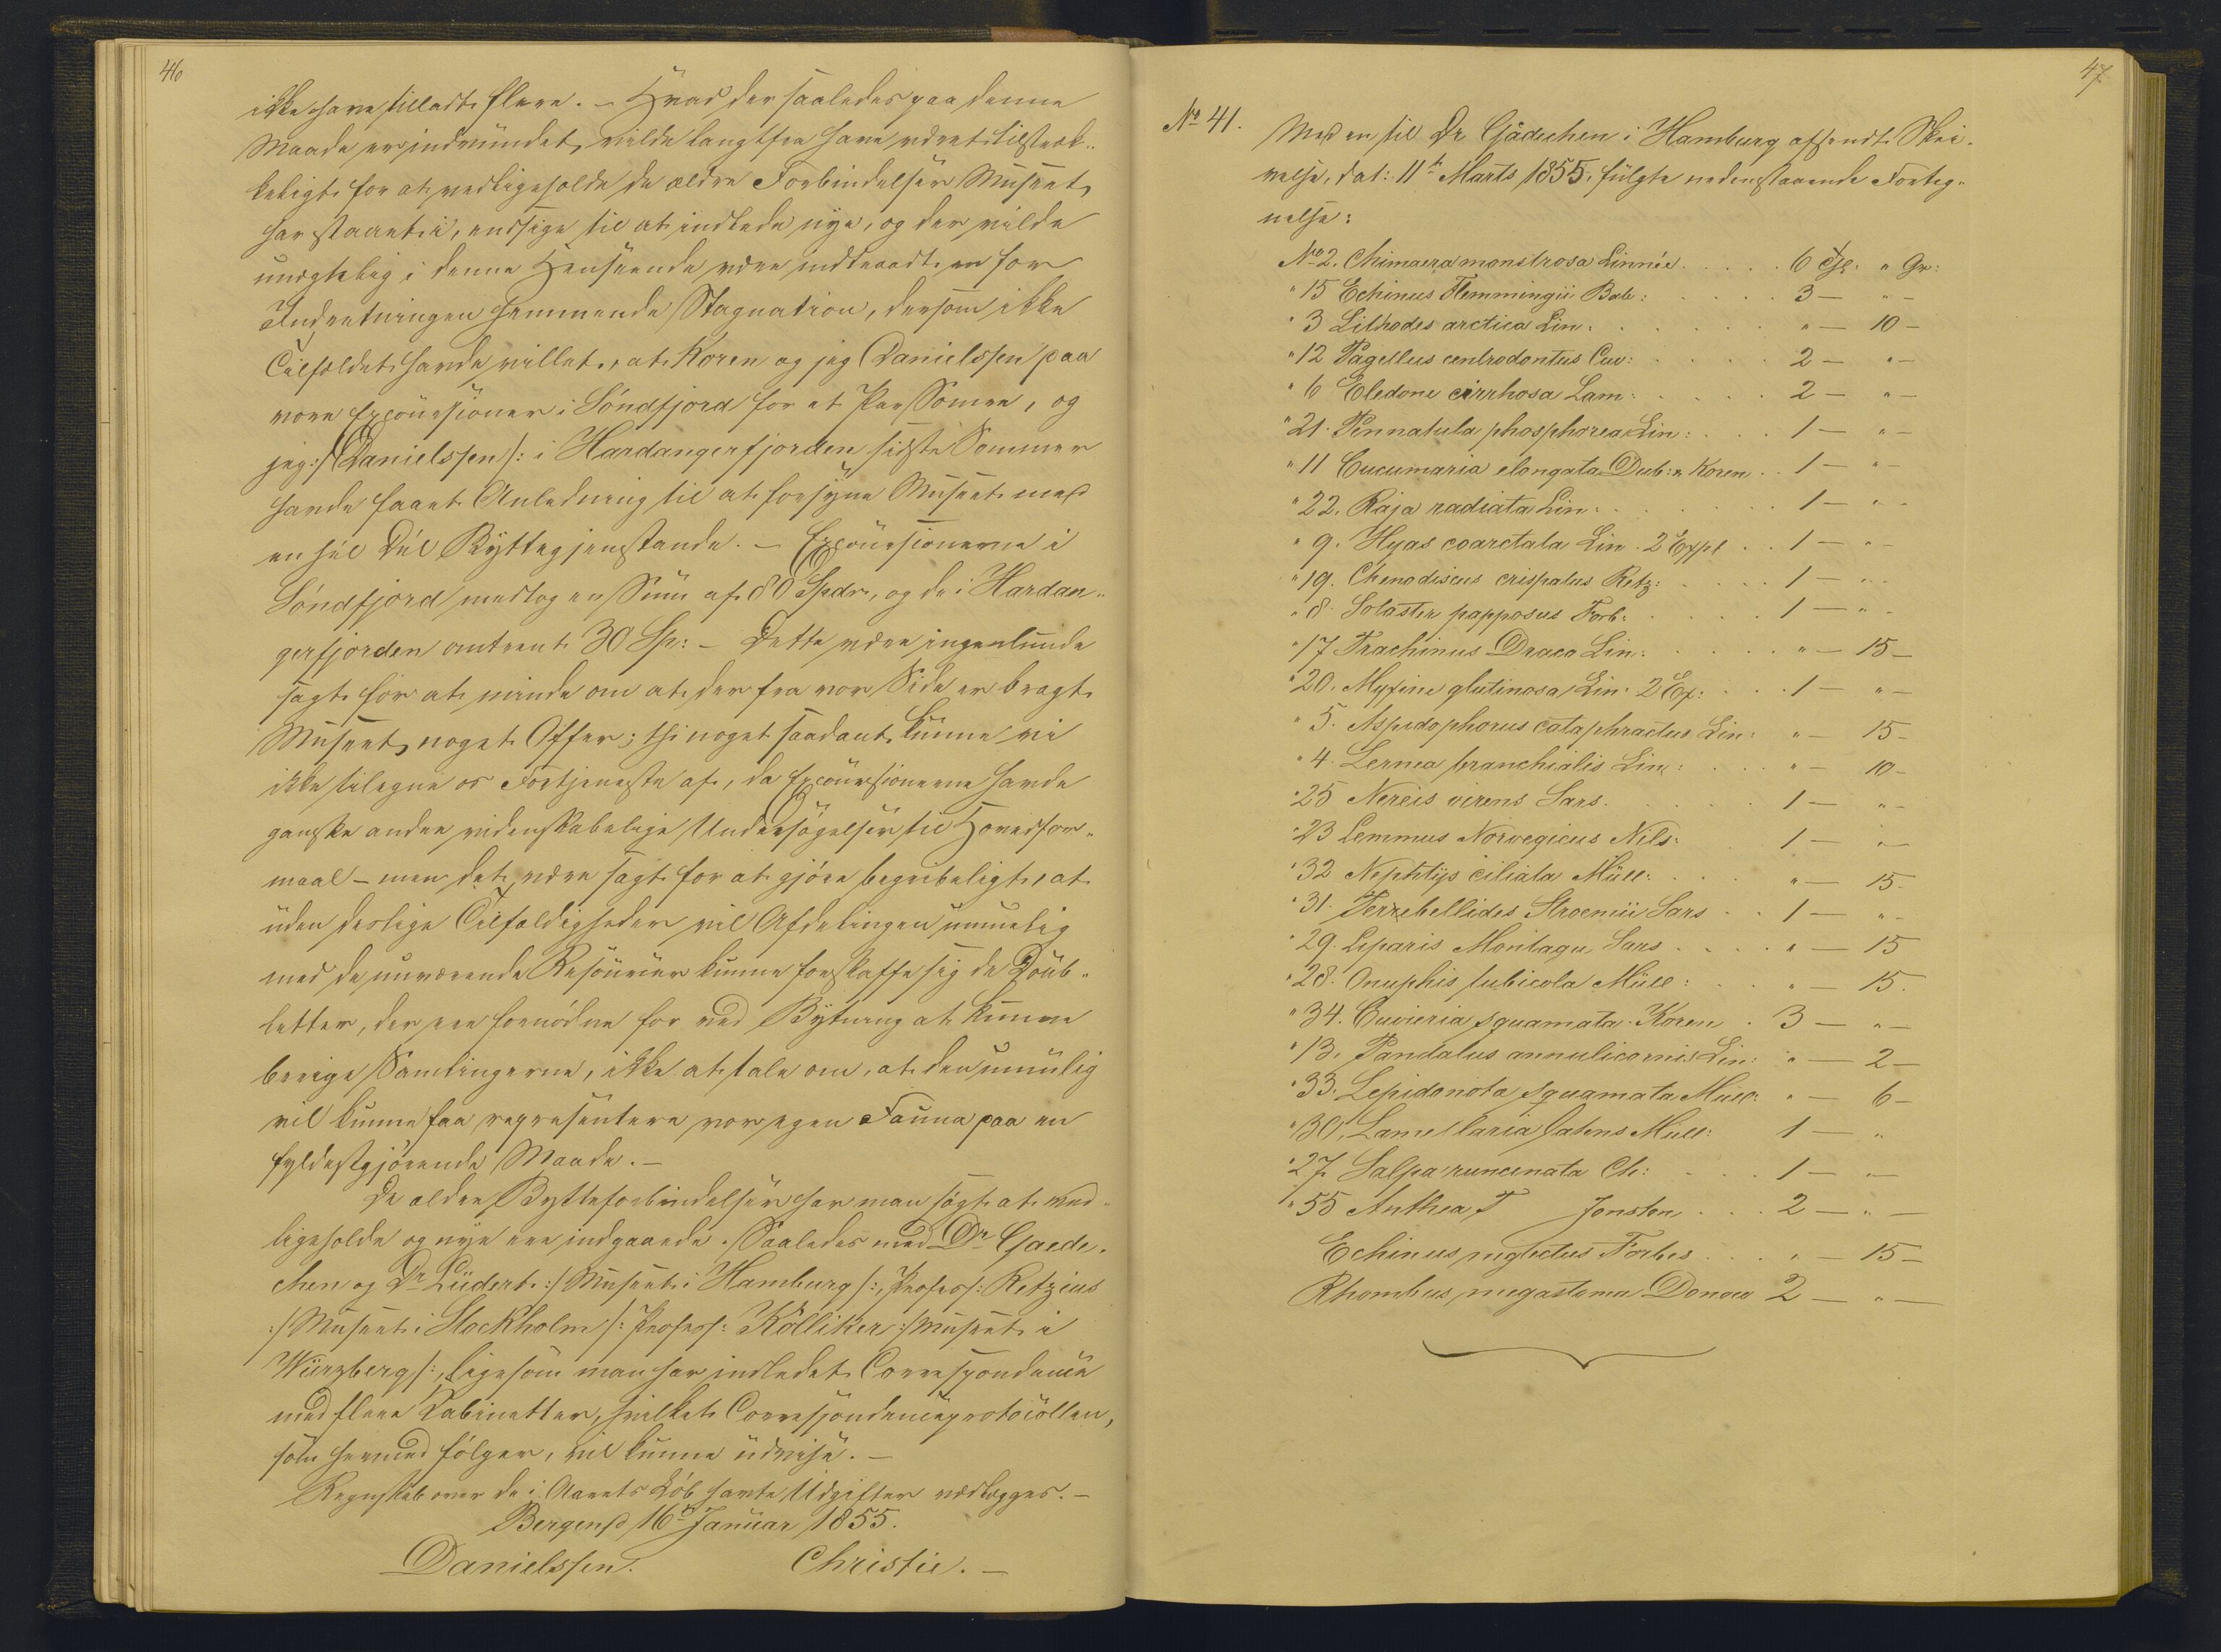 46
ikke have tilladt flere. – Hvad der saaledes paa denne
Maade er indvundet, vilde langtfra have været tilstræk„
keligt for at vedligeholde de ældre Forbindelser Museet
har staaet i, endsige til at indlede nye, og der vilde
unegtelig i denne Henseende være indtraadt en for
Indretningen hemmende Stagnation, dersom ikke
Tilfeldet havde villet, at Koren og jeg (Danielssen) paa
vore Excursioner i Söndfjord for et Par Somre, og
jeg :/Danielssen/: i Hardangerfjorden sidste Sommer
havde faaet Anledning til at forsyne Museet med
en hel Del Byttegjenstande. – Excursionerne i
Söndfjord medtog en Sum af 80 Spdr., og de i Hardan„
gerfjorden omtrent 30 Sp: – Dette være ingenlunde
sagt for at minde om at der fra vor Side er bragt
Museet noget Offer; thi noget saadant kunne vi
ikke tilegne os Fortjeneste af, da Excursionerne havde
ganske andre videnskabelige Undersögelser til Hovedfor„
maal – men det være sagt for at gjöre begribeligt, at
uden deslige Tilfeldigheder vil Afdelingen umuelig
med de nuværende Resourcer kunne forskaffe sig de Doub„
letter, der ere fornödne for ved Bytning at kunne
berige Samlingerne, ikke at tale om, at den umulig
vil kunne faa repræsentere vor egen Fauna paa en
fyldestgjörende Maade. –
De ældre Bytteforbindelser har man sögt at ved„
ligeholde og nye ere indgaaede. Saaledes med Dr Gaede„
chen og Dr Lüdert :/Museet i Hamburg/:, Profess: Retzius
:/Museet i Stockholm/: Profess: Kölliker :/Museet i
Würzberg/:, ligesom man har indledet Correspondence
med flere Kabinetter, hvilket Correspondenceprotocollen,
som hermed fölger, vil kunne udvise. –
Regnskab over de i Aarets Löb havte Udgifter vedlægges. –
Bergen d 16de Januar 1855.
Danielssen. Christie. –
47
No 41.
Med en til Dr Gädechen i Hamburg afsendt Skri„
velse, dat: 11te Marts 1855, fulgte nedenstaaende Forteg„
nelse:
No 2. Chimaera monstrosa Linnée . . . . 6 Gr:
" 15 Echinus Flemmingii Bale: . . . . 3 — " —
" 3 Lithodes arctica Lin: . . . . " — 10 —
" 12 Pagellus centrodontus Cuv: . . . . 2 — " —
" 6 Eledone cirrhosa Lam: . . . . 2 — " —
" 21. Pennatula phosphorea Lin: . . . 1 — " —
" 11 Cucumaria elongata Dub: & Koren . . 1 — " —
" 22. Raja radiata Lin: . . . . 1 — " —
" 9. Hyas coarctata Lin. 2 Expl . . 1 — " —
" 19. Chenodiscus crispatus Retz: . . . 1 — " —
" 8. Solaster papposus Forb: . . . . 1 — " —
" 17 Trachinus Draco Lin: . . . . " — 15 —
" 20. Myxine glutinosa Lin: 2 Ex: . . . 1 — " —
" 5. Aspidophorus cataphractus Lin: " — 15 —
" 4. Lernea branchialis Lin: . . . " — 10 —
" 25 Nereis virens Sars. . . . . 1 — " —
" 23 Lemmus Norvegicus Nils: 1 — " —
" 32 Nephtys ciliata Müll: . . . " — 15.
" 31. Terrebellides Stroemii Sars . . 1 — " —
" 29. Liparis Montagu Sars . . . . " — 15
" 28. Onuphis tubicola Müll: . . . " — 15.
" 34. Cuvieria squamata. Koren . 3 — " —
" 13. Pandalus annulicornis Lin: " — 2 —
" 33. Lepidonota squamata Müll: " — 6 —
" 30. Lamellaria latens Müll: 1 — "
" 27 Salpa runcinata Ch: . . . 1 — " —
" 55 Anthea T Jonston . . . 2 — " —
Echinus neglectus Forbes . . . " — 15 —
Rhombus megastoma Donov 2 — " —